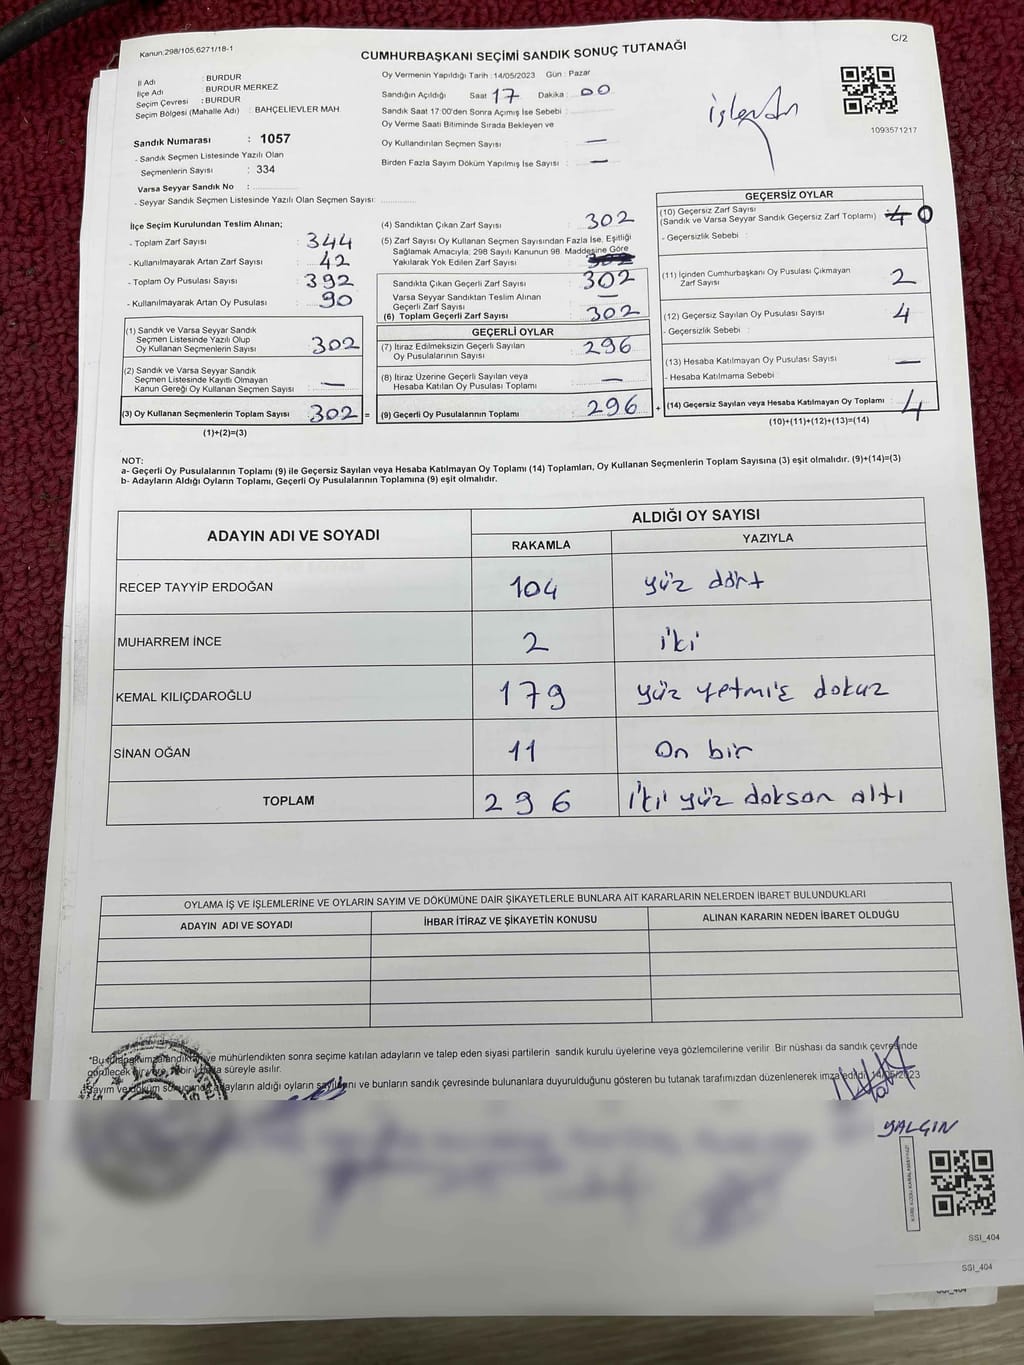 Kanun:298/105,6271/18-1
C/2
CUMHURBAŞKANI SEÇİMİ SANDIK SONUÇ TUTANAĞI
İl Adı : BURDUR
İlçe Adı : BURDUR MERKEZ
Seçim Çevresi : BURDUR
Seçim Bölgesi (Mahalle Adı) : BAHÇELİEVLER MAH
Sandık Numarası : 1057
- Sandık Seçmen Listesinde Yazılı Olan
Seçmenlerin Sayısı : 334
Varsa Seyyar Sandık No :
- Seyyar Sandık Seçmen Listesinde Yazılı Olan Seçmen Sayısı:
Oy Vermenin Yapıldığı Tarih : 14/05/2023 Gün : Pazar
Sandığın Açıldığı Saat 17 Dakika : 00
Sandık Saat 17:00'den Sonra Açımış İse Sebebi :
Oy Verme Saati Bitiminde Sırada Bekleyen ve
Oy Kullandırılan Seçmen Sayısı : —
Birden Fazla Sayım Döküm Yapılmış İse Sayısı : —
1093571217
İlçe Seçim Kurulundan Teslim Alınan;
- Toplam Zarf Sayısı : 344
- Kullanılmayarak Artan Zarf Sayısı : 42
- Toplam Oy Pusulası Sayısı : 392
- Kullanılmayarak Artan Oy Pusulası : 90
(1) Sandık ve Varsa Seyyar Sandık
Seçmen Listesinde Yazılı Olup
Oy Kullanan Seçmenlerin Sayısı : 302
(2) Sandık ve Varsa Seyyar Sandık
Seçmen Listesinde Kayıtlı Olmayan
Kanun Gereği Oy Kullanan Seçmen Sayısı : —
(3) Oy Kullanan Seçmenlerin Toplam Sayısı : 302 =
(1)+(2)=(3)
(4) Sandıktan Çıkan Zarf Sayısı : 302
(5) Zarf Sayısı Oy Kullanan Seçmen Sayısından Fazla İse, Eşitliği
Sağlamak Amacıyla; 298 Sayılı Kanunun 98. Maddesine Göre
Yakılarak Yok Edilen Zarf Sayısı :
Sandıkta Çıkan Geçerli Zarf Sayısı : 302
Varsa Seyyar Sandıktan Teslim Alınan
Geçerli Zarf Sayısı : —
(6) Toplam Geçerli Zarf Sayısı : 302
GEÇERLİ OYLAR
(7) İtiraz Edilmeksizin Geçerli Sayılan
Oy Pusulalarının Sayısı : 296
(8) İtiraz Üzerine Geçerli Sayılan veya
Hesaba Katılan Oy Pusulası Toplamı : —
(9) Geçerli Oy Pusulalarının Toplamı : 296 +
GEÇERSİZ OYLAR
(10) Geçersiz Zarf Sayısı
(Sandık ve Varsa Seyyar Sandık Geçersiz Zarf Toplamı) : 4 0
- Geçersizlik Sebebi :
(11) İçinden Cumhurbaşkanı Oy Pusulası Çıkmayan
Zarf Sayısı : 2
(12) Geçersiz Sayılan Oy Pusulası Sayısı : 4
- Geçersizlik Sebebi :
(13) Hesaba Katılmayan Oy Pusulası Sayısı : —
- Hesaba Katılmama Sebebi :
(14) Geçersiz Sayılan veya Hesaba Katılmayan Oy Toplamı : 4
(10)+(11)+(12)+(13)=(14)
NOT:
a- Geçerli Oy Pusulalarının Toplamı (9) ile Geçersiz Sayılan veya Hesaba Katılmayan Oy Toplamı (14) Toplamları, Oy Kullanan Seçmenlerin Toplam Sayısına (3) eşit olmalıdır. (9)+(14)=(3)
b- Adayların Aldığı Oyların Toplamı, Geçerli Oy Pusulalarının Toplamına (9) eşit olmalıdır.
ADAYIN ADI VE SOYADI
ALDIĞI OY SAYISI
RAKAMLA YAZIYLA
RECEP TAYYİP ERDOĞAN 104 yüz dört
MUHARREM İNCE 2 iki
KEMAL KILIÇDAROĞLU 179 yüz yetmiş dokuz
SİNAN OĞAN 11 On bir
TOPLAM 296 iki yüz doksan altı
OYLAMA İŞ VE İŞLEMLERİNE VE OYLARIN SAYIM VE DÖKÜMÜNE DAİR ŞİKAYETLERLE BUNLARA AİT KARARLARIN NELERDEN İBARET BULUNDUKLARI
ADAYIN ADI VE SOYADI İHBAR İTİRAZ VE ŞİKAYETİN KONUSU ALINAN KARARIN NEDEN İBARET OLDUĞU
ve mühürlendikten sonra seçime katılan adayların ve talep eden siyasi partilerin sandık kurulu üyelerine veya gözlemcilerine verilir .Bir nüshası da sandık çevresinde
süreyle asılır.
adayların aldığı oyların sayılarını ve bunların sandık çevresinde bulunanlara duyurulduğunu gösteren bu tutanak tarafımızdan düzenlenerek imza edildi. 14/05/2023
YALÇIN
KARE KODU KARALAMAYINIZ!
SSI_404
SSI_404
SSI_404